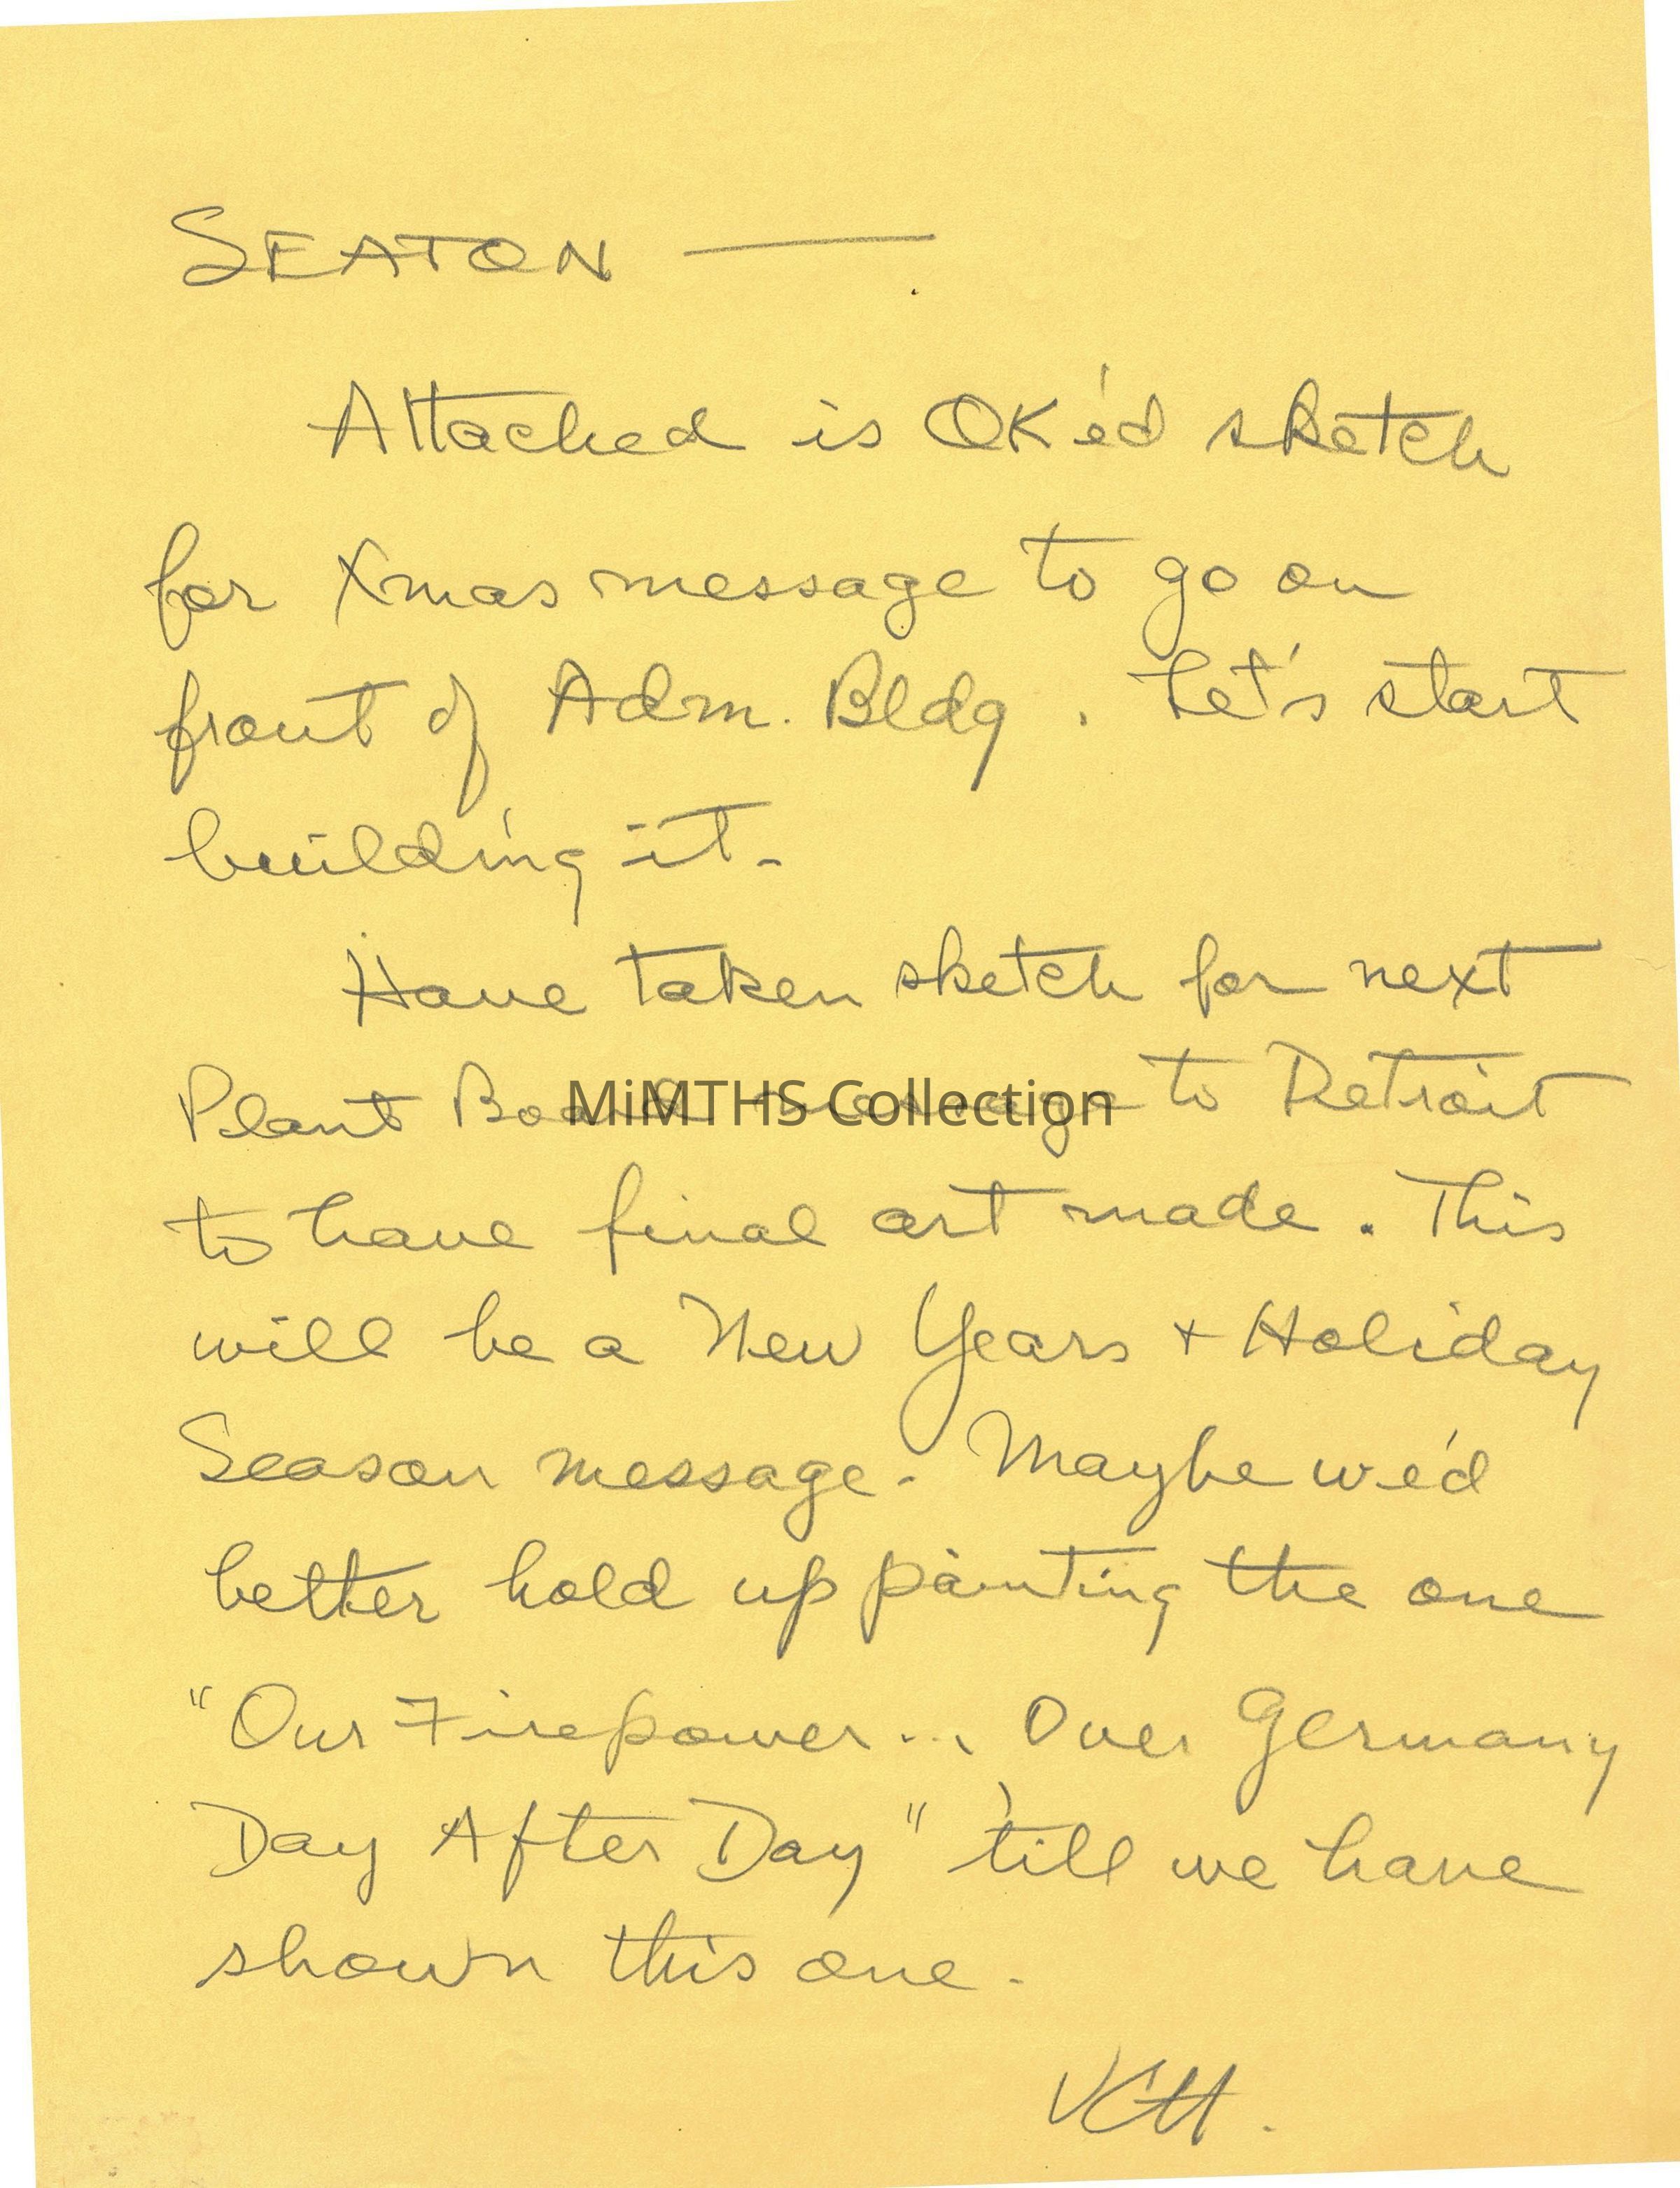 SEATON —
Attached is OK'ed sketch
for Xmas message to go on
front of Adm. Bldg. Let's start
building it.
Have taken sketch for next
Plant Board message to Detroit
MiMTHS Collection
to have final art made. This
will be a New Years + Holiday
Season message. Maybe we'd
better hold up painting the one
"Our Firepower... Over Germany
Day After Day" 'till we have
shown this one.